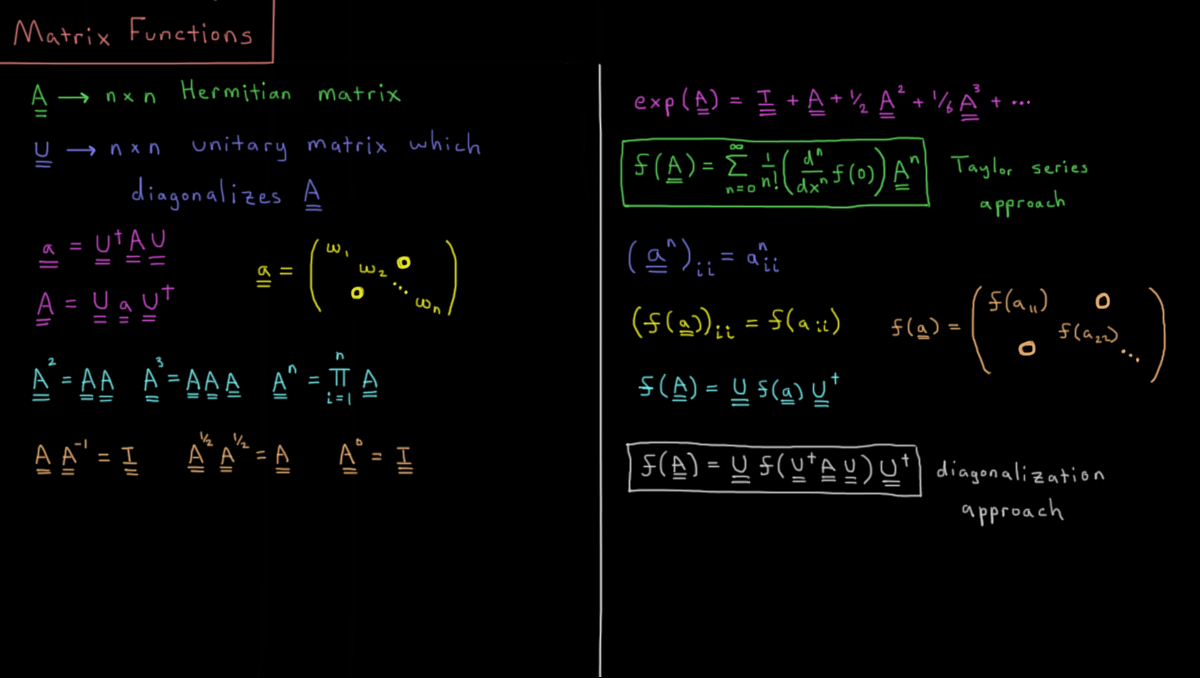 Matrix Functions
A̳ → n×n Hermitian matrix
U̳ → n×n unitary matrix which
diagonalizes A̳
a̳ = U̳† A̳ U̳
a̳ = ( ω₁ ω₂ 0 0 ⋱ ωₙ )
A̳ = U̳ a̳ U̳†
A̳² = A̳A̳ A̳³ = A̳A̳A̳ A̳ⁿ = ∏ᵢ₌₁ⁿ A̳
A̳ A̳⁻¹ = I̳ A̳^½ A̳^½ = A̳ A̳⁰ = I̳
exp(A̳) = I̳ + A̳ + ½ A̳² + 1/6 A̳³ + ⋯
f(A̳) = ∑ₙ₌₀^∞ 1/n! (dⁿ/dxⁿ f(0)) A̳ⁿ
Taylor series
approach
(a̳ⁿ)ᵢᵢ = aᵢᵢⁿ
(f(a̳))ᵢᵢ = f(aᵢᵢ)
f(a̳) = ( f(a₁₁) 0 f(a₂₂) 0 ⋱ )
f(A̳) = U̳ f(a̳) U̳†
f(A̳) = U̳ f(U̳† A̳ U̳) U̳†
diagonalization
approach